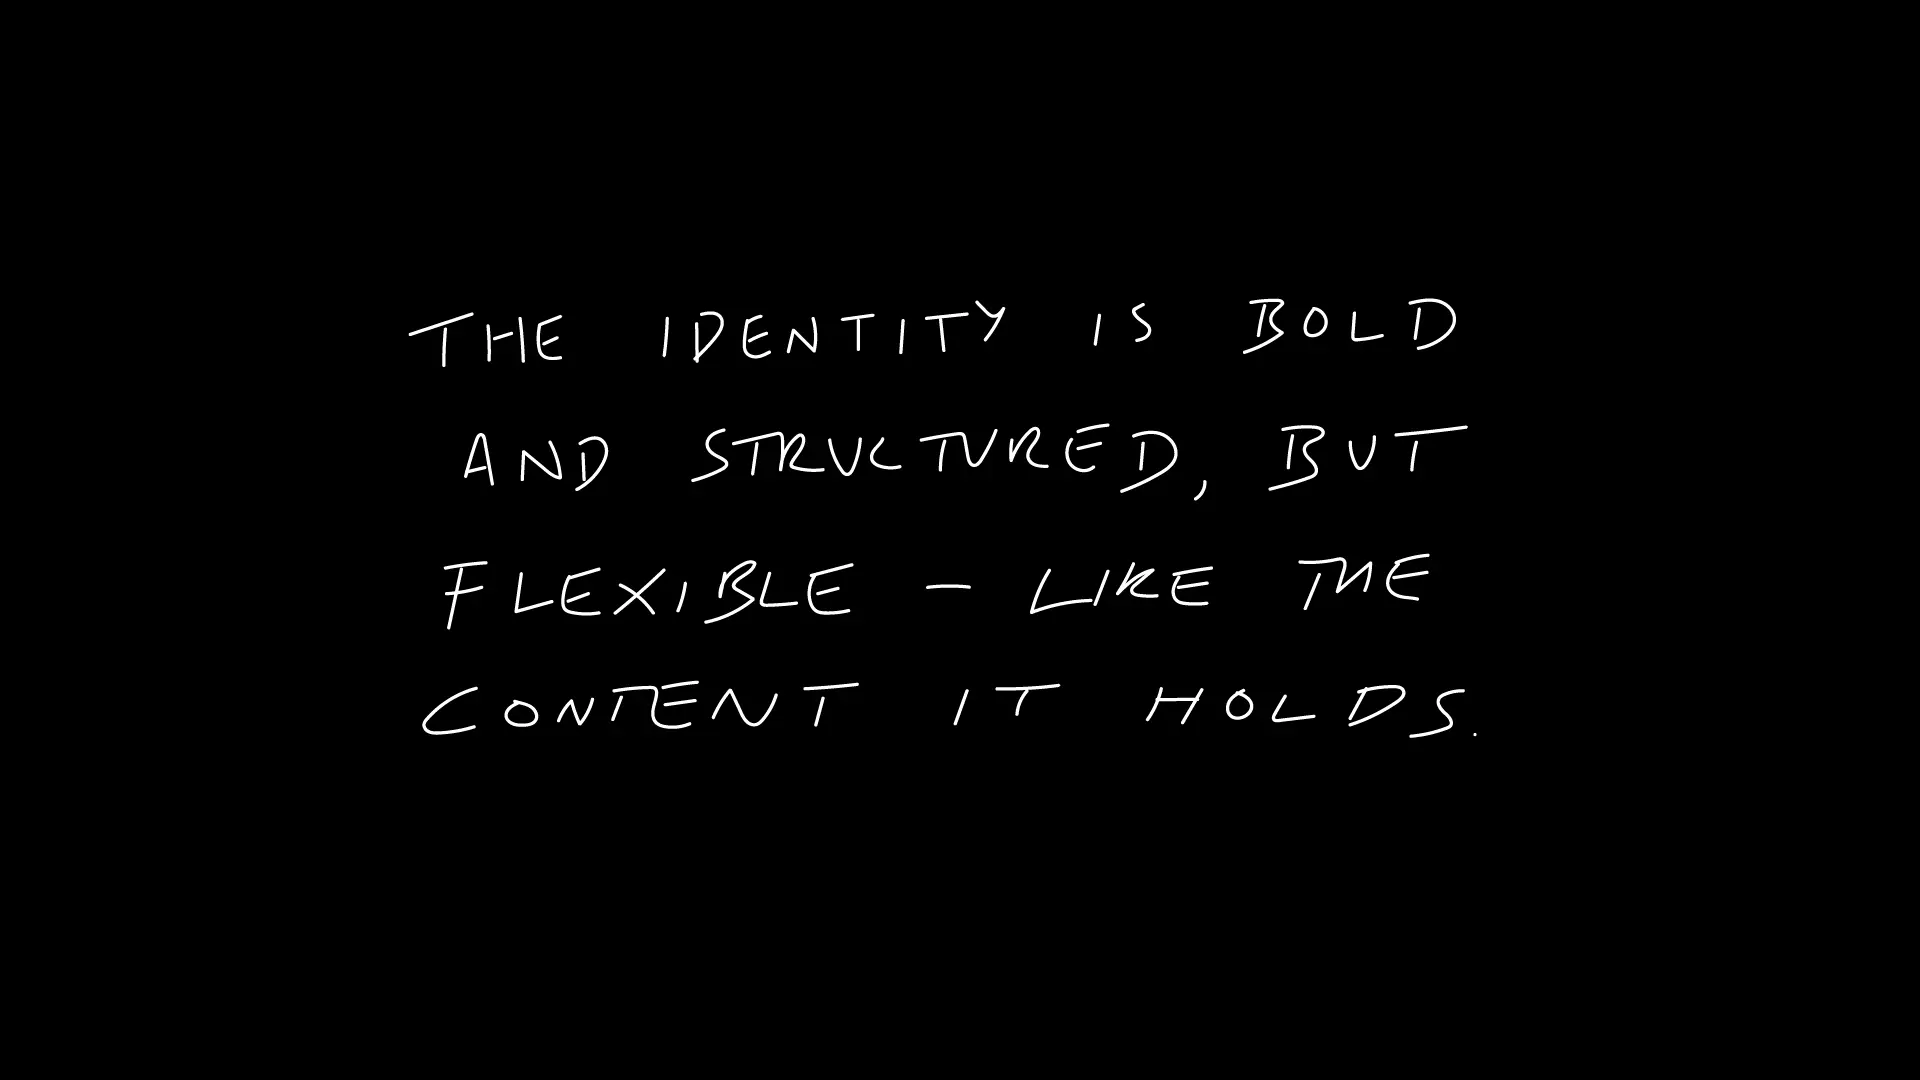 THE IDENTITY IS BOLD
AND STRUCTURED, BUT
FLEXIBLE – LIKE THE
CONTENT IT HOLDS.